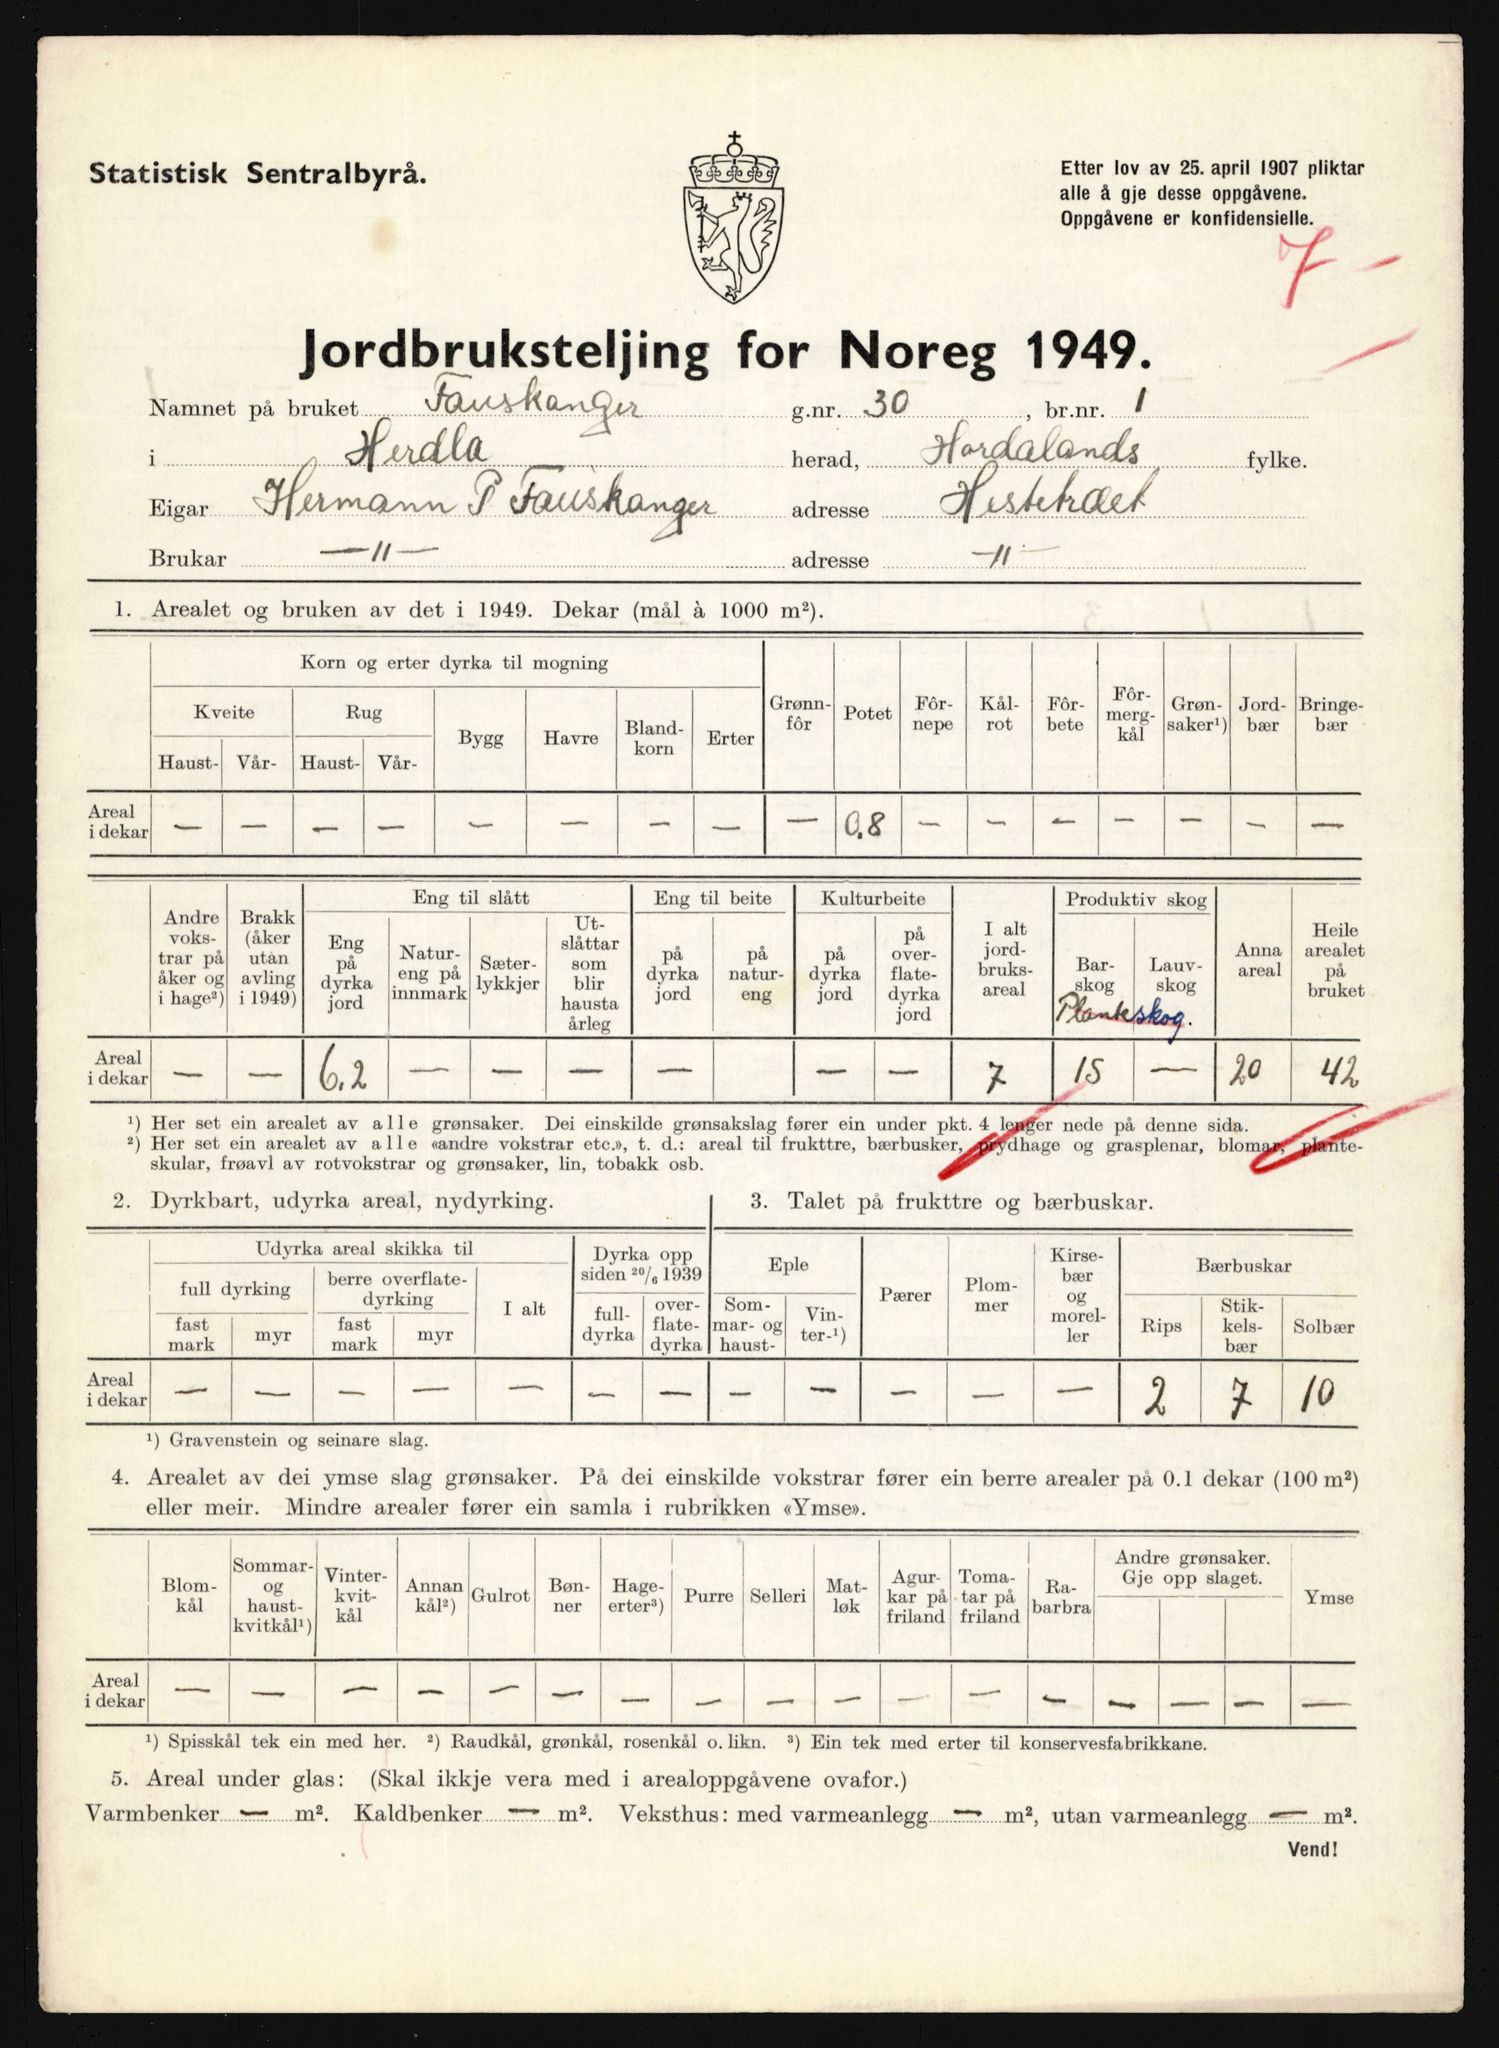 Statistisk Sentralbyrå.
Etter lov av 25. april 1907 pliktar
alle å gje desse oppgåvene.
Oppgåvene er konfidensielle.
7 —
Jordbruksteljing for Noreg 1949.
Namnet på bruket Fauskanger g.nr. 30, br.nr. 1
i Herdla herad, Hordalands fylke.
Eigar Hermann P Fauskanger adresse Hestetræet
Brukar —"— adresse —"—
1. Arealet og bruken av det i 1949. Dekar (mål à 1000 m²).
Korn og erter dyrka til mogning
Kveite Rug Bygg Havre Bland-korn Erter Grønn-fôr Potet Fôr-nepe Kål-rot Fôr-bete Fôr-mergkål Grøn-saker¹) Jord-bær Bringe-bær
Haust- Vår- Haust- Vår-
Areal i dekar — — — — — — — — — 0.8 — — — — — — —
Andre voks-trar på åker og i hage²) Brakk (åker utan avling i 1949) Eng til slått Eng til beite Kulturbeite I alt jord-bruks-areal Produktiv skog Anna areal Heile arealet på bruket
Eng på dyrka jord Natur-eng på innmark Sæter-lykkjer Ut-slåttar som blir hausta årleg på dyrka jord på natur-eng på dyrka jord på over-flate-dyrka jord Bar-skog Lauv-skog
Planteskog.
Areal i dekar — — 6.2 — — — — — — 7 15 — 20 42
¹) Her set ein arealet av alle grønsaker. Dei einskilde grønsakslag fører ein under pkt. 4 lenger nede på denne sida.
²) Her set ein arealet av alle «andre vokstrar etc.», t. d.: areal til frukttre, bærbusker, prydhage og grasplenar, blomar, plante-
skular, frøavl av rotvokstrar og grønsaker, lin, tobakk osb.
2. Dyrkbart, udyrka areal, nydyrking.
3. Talet på frukttre og bærbuskar.
Udyrka areal skikka til Dyrka opp siden 20/6 1939 Eple Pærer Plom-mer Kirse-bær og morel-ler Bærbuskar
full dyrking berre overflate-dyrking I alt full-dyrka over-flate-dyrka Som-mar- og haust- Vin-ter-¹) Rips Stik-kels-bær Solbær
fast mark myr fast mark myr
Areal i dekar — — — — — — — — — — — — 2 7 10
¹) Gravenstein og seinare slag.
4. Arealet av dei ymse slag grønsaker. På dei einskilde vokstrar fører ein berre arealer på 0.1 dekar (100 m²)
eller meir. Mindre arealer fører ein samla i rubrikken «Ymse».
Blom-kål Sommar- og haust-kvitkål¹) Vinter-kvit-kål Annan kål²) Gulrot Bøn-ner Hage-erter³) Purre Selleri Mat-løk Agur-kar på friland Toma-tar på friland Ra-barbra Andre grønsaker. Gje opp slaget. Ymse
Areal i dekar — — — — — — — — — — — — — — — — —
¹) Spisskål tek ein med her. ²) Raudkål, grønkål, rosenkål o. likn. ³) Ein tek med erter til konservesfabrikkane.
5. Areal under glas: (Skal ikkje vera med i arealoppgåvene ovafor.)
Varmbenker — m². Kaldbenker — m². Veksthus: med varmeanlegg — m², utan varmeanlegg — m².
Vend!